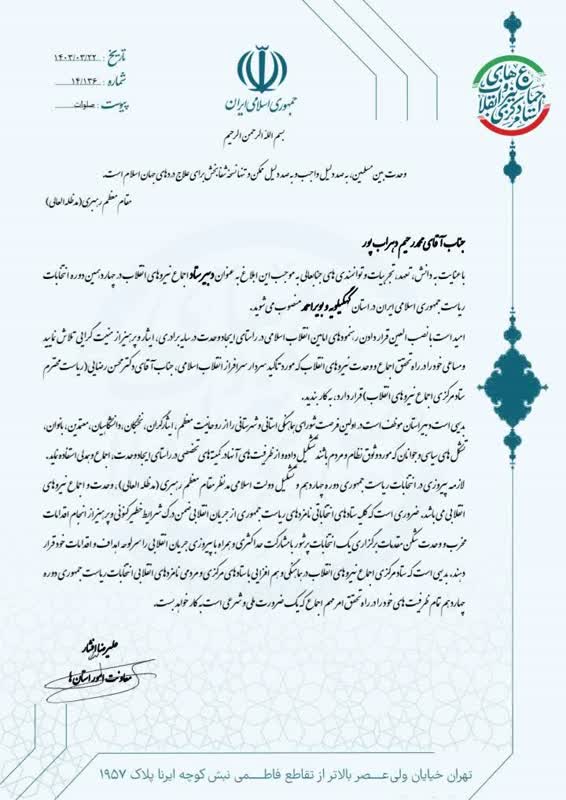 تاریخ : ۱۴۰۳/۰۳/۲۲
شماره : ۱۴/۱۳۶
پیوست : صلوات
جمهوری اسلامی ایران
ستاد مرکزی اجماع نیروهای انقلاب
بسم الله الرحمن الرحیم
وحدت بین مسلمین، به صد دلیل واجب و به صد دلیل ممکن و تنها نسخه شفابخش برای علاج دردهای جهان اسلام است.
مقام معظم رهبری (مدظله العالی)
جناب آقای محمدرحیم دهراب پور
با عنایت به دانش، تعهد، تجربیات و توانمندی های جنابعالی به موجب این ابلاغ به عنوان دبیر ستاد اجماع نیروهای انقلاب در چهاردهمین دوره انتخابات
ریاست جمهوری اسلامی ایران در استان کهگیلویه و بویراحمد منصوب می شوید.
امید است با نصب العین قرار دادن رهنمودهای امامین انقلاب اسلامی در راستای ایجاد وحدت در سایه برادری، ایثار و پرهیز از منیت گرایی تلاش نمایید
و مساعی خود را در راه تحقق اجماع و وحدت نیروهای انقلاب که مورد تاکید سردار سرافراز انقلاب اسلامی، جناب آقای دکتر محسن رضایی (ریاست محترم
ستاد مرکزی اجماع نیروهای انقلاب) قرار دارد، به کار بندید.
بدیهی است دبیر استان موظف است در اولین فرصت شورای هماهنگی استانی و شهرستانی را از روحانیت معظم، ایثارگران، نخبگان، دانشگاهیان، معتمدین، بانوان،
تشکل های سیاسی و جوانان که مورد وثوق نظام و مردم باشند تشکیل داده و از ظرفیت های آنها در کمیته های تخصصی در راستای ایجاد وحدت، اجماع و همدلی استفاده نماید.
لازمه پیروزی در انتخابات ریاست جمهوری دوره چهاردهم و تشکیل دولت اسلامی مدنظر مقام معظم رهبری (مدظله العالی)، وحدت و اجماع نیروهای
انقلابی می باشد. ضروری است که کلیه ستادهای انتخاباتی نامزدهای ریاست جمهوری از جریان انقلابی ضمن درک شرایط خطیر کنونی و پرهیز از انجام اقدامات
مخرب و وحدت شکن مقدمات برگزاری یک انتخابات پرشور با مشارکت حداکثری و همراه با پیروزی جریان انقلابی را سرلوحه اهداف و اقدامات خود قرار
دهند، بدیهی است که ستاد مرکزی اجماع نیروهای انقلاب در هماهنگی و هم افزایی با ستادهای مرکزی و مردمی نامزدهای انقلابی انتخابات ریاست جمهوری دوره
چهاردهم تمام ظرفیت های خود را در راه تحقق امر مهم اجماع که یک ضرورت ملی و شرعی است به کار خواهد بست.
علیرضا افشار
معاونت امور استان ها
تهران خیابان ولی‌عصر بالاتر از تقاطع فاطمی نبش کوچه ایرنا پلاک ۱۹۵۷